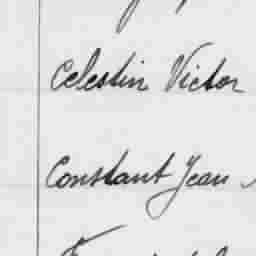 Celestin Victor
Constant Jean